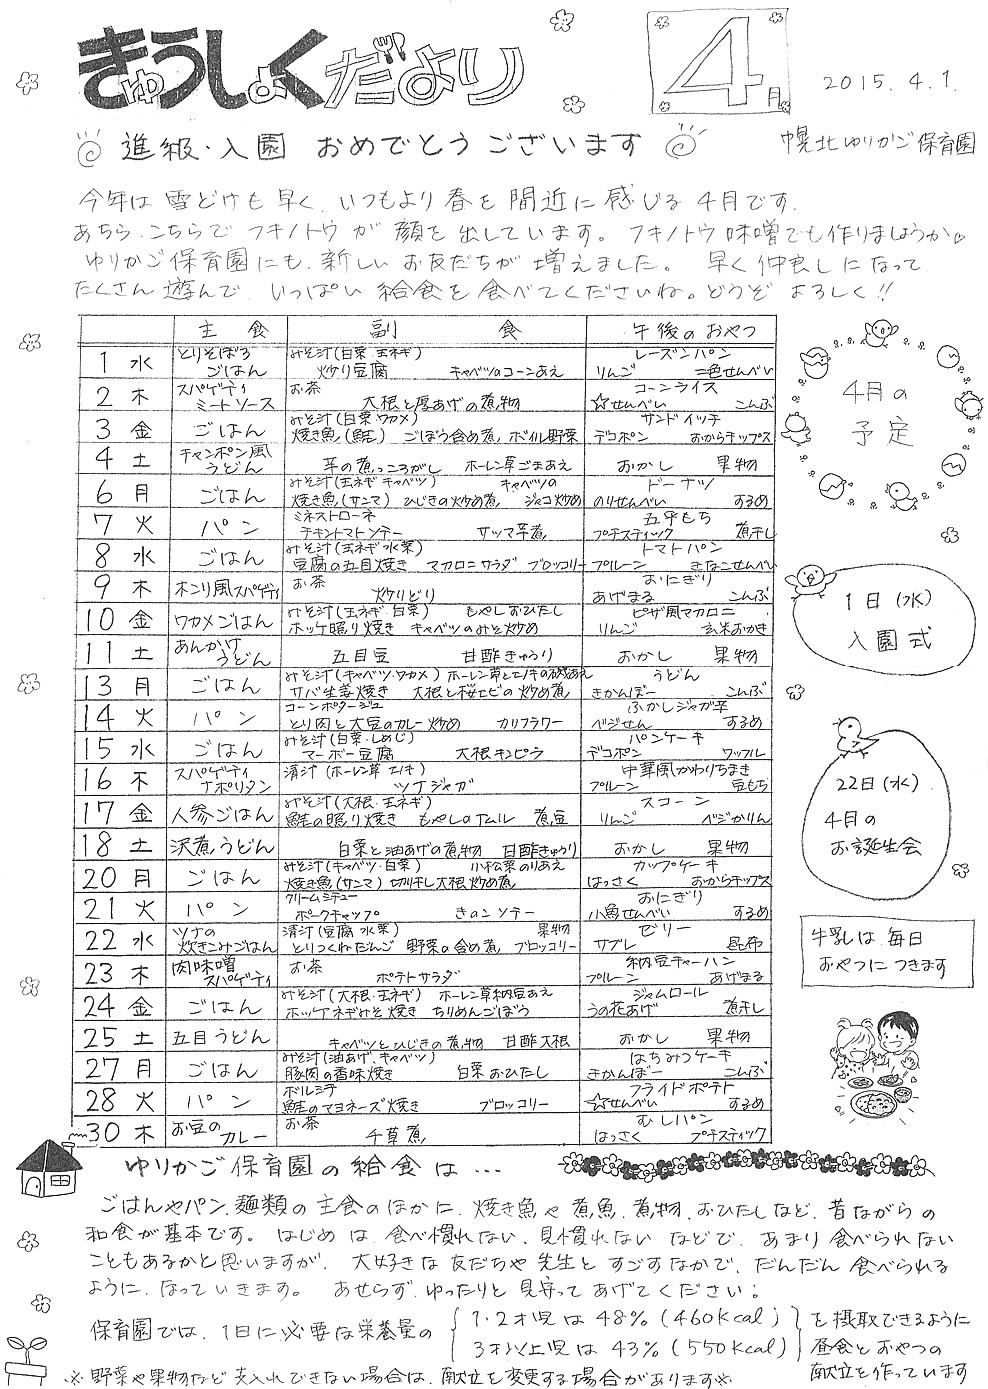 きゅうしょくだより
4月
2015.4.1.
進級・入園 おめでとうございます
幌北ゆりかご保育園
今年は雪どけも早く、いつもより春を間近に感じる4月です。
あちら、こちらでフキノトウが顔を出しています。フキノトウ味噌でも作りましょうか♡
ゆりかご保育園にも、新しいお友だちが増えました。早く仲良しになって、
たくさん遊んで、いっぱい給食を食べてくださいね。どうぞよろしく!!
主食 副食 午後のおやつ
1 水 とりそぼろごはん みそ汁(白菜・玉ネギ) 炒り豆腐 キャベツのコーンあえ レーズンパン りんご 二色せんべい
2 木 スパゲティミートソース お茶 大根と厚あげの煮物 コーンライス ☆せんべい こんぶ
3 金 ごはん みそ汁(白菜・ワカメ) 焼き魚(鮭) ごぼう含め煮 ボイル野菜 サンドイッチ デコポン おからチップス
4 土 チャンポン風うどん 芋の煮っころがし ホーレン草ごまあえ おかし 果物
6 月 ごはん みそ汁(玉ネギ キャベツ) 焼き魚(サンマ) ひじきの炒め煮 キャベツのジャコ炒め ドーナツ のりせんべい するめ
7 火 パン ミネストローネ チキントマトソテー サツマ芋煮 五平もち プチスティック 煮干し
8 水 ごはん みそ汁(玉ネギ 水菜) 豆腐の五目焼き マカロニサラダ ブロッコリー トマトパン プルーン きなこせんべい
9 木 ホンリ風スパゲティ お茶 炒りどり おにぎり あげまる こんぶ
10 金 ワカメごはん みそ汁(玉ネギ・白菜) もやしおひたし ホッケ照り焼き キャベツのみそ炒め ピザ風マカロニ りんご 玄米おかき
11 土 あんかけうどん 五目豆 甘酢きゅうり おかし 果物
13 月 ごはん みそ汁(キャベツ・ワカメ) ホーレン草とエノキの磯あえ サバ生姜焼き 大根と桜エビの炒め煮 うどん きかんぼー こんぶ
14 火 パン コーンポタージュ とり肉と大豆のカレー炒め カリフラワー ふかしジャガ芋 ベジせん するめ
15 水 ごはん みそ汁(白菜・しめじ) マーボー豆腐 大根キンピラ パンケーキ デコポン ワッフル
16 木 スパゲティナポリタン 清汁(ホーレン草 エノキ) ツナジャガ 中華風かわりちまき プルーン 豆もち
17 金 人参ごはん みそ汁(大根・玉ネギ) 鮭の照り焼き もやしのナムル 煮豆 スコーン りんご ベジかりん
18 土 沢煮うどん 白菜と油あげの煮物 甘酢きゅうり おかし 果物
20 月 ごはん みそ汁(キャベツ・白菜) 小松菜のりあえ 焼き魚(サンマ) 切り干し大根炒め煮 カップケーキ はっさく おからチップス
21 火 パン クリームシチュー ポークチャップ きのこソテー おにぎり 小魚せんべい するめ
22 水 ツナの炊きこみごはん 清汁(豆腐 水菜) 果物 とりつくねだんご 野菜の含め煮 ブロッコリー ゼリー サブレ 昆布
23 木 肉味噌スパゲティ お茶 ポテトサラダ 納豆チャーハン プルーン あげまる
24 金 ごはん みそ汁(大根・玉ネギ) ホーレン草納豆あえ ホッケネギみそ焼き ちりめんごぼう ジャムロール うの花あげ 煮干し
25 土 五目うどん キャベツとひじきの煮物 甘酢大根 おかし 果物
27 月 ごはん みそ汁(油あげ、キャベツ) 豚肉の香味焼き 白菜おひたし はちみつケーキ きかんぼー こんぶ
28 火 パン ボルシチ 鮭のマヨネーズ焼き ブロッコリー フライドポテト ☆せんべい するめ
30 木 お豆のカレー お茶 千草煮 むしパン はっさく プチスティック
4月の
予定
1日(水)
入園式
22日(水)
4月の
お誕生会
牛乳は毎日
おやつにつきます
ゆりかご保育園の給食は…
ごはんやパン、麺類の主食のほかに、焼き魚や煮魚、煮物、おひたしなど、昔ながらの
和食が基本です。はじめは、食べ慣れない、見慣れないなどで、あまり食べられない
こともあるかと思いますが、大好きな友だちや先生とすごすなかで、だんだん食べられる
ように、なっていきます。あせらず、ゆったりと見守ってあげてください。
保育園では、1日に必要な栄養量の
1・2才児は48%(460Kcal)
3才以上児は43%(550Kcal)
を摂取できるように
昼食とおやつの
献立を作っています
※野菜や果物など支入れできない場合は、献立を変更する場合があります※